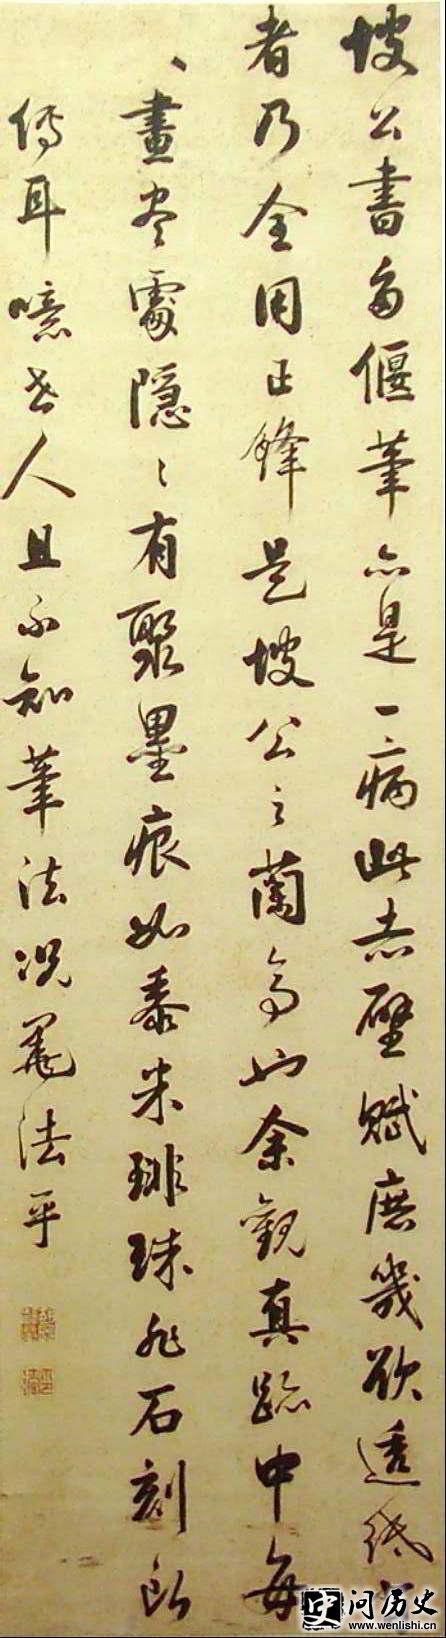 坡公書多偃筆亦是一病此赤壁賦庶幾欲透紙
者乃全用正鋒是坡公之蘭亭也余觀真跡中每
、畫尽處隱、有聚墨痕如黍米琲珠非石刻所
傳耳噫世人且不知筆法況墨法乎
问历史
www.wenlishi.cn